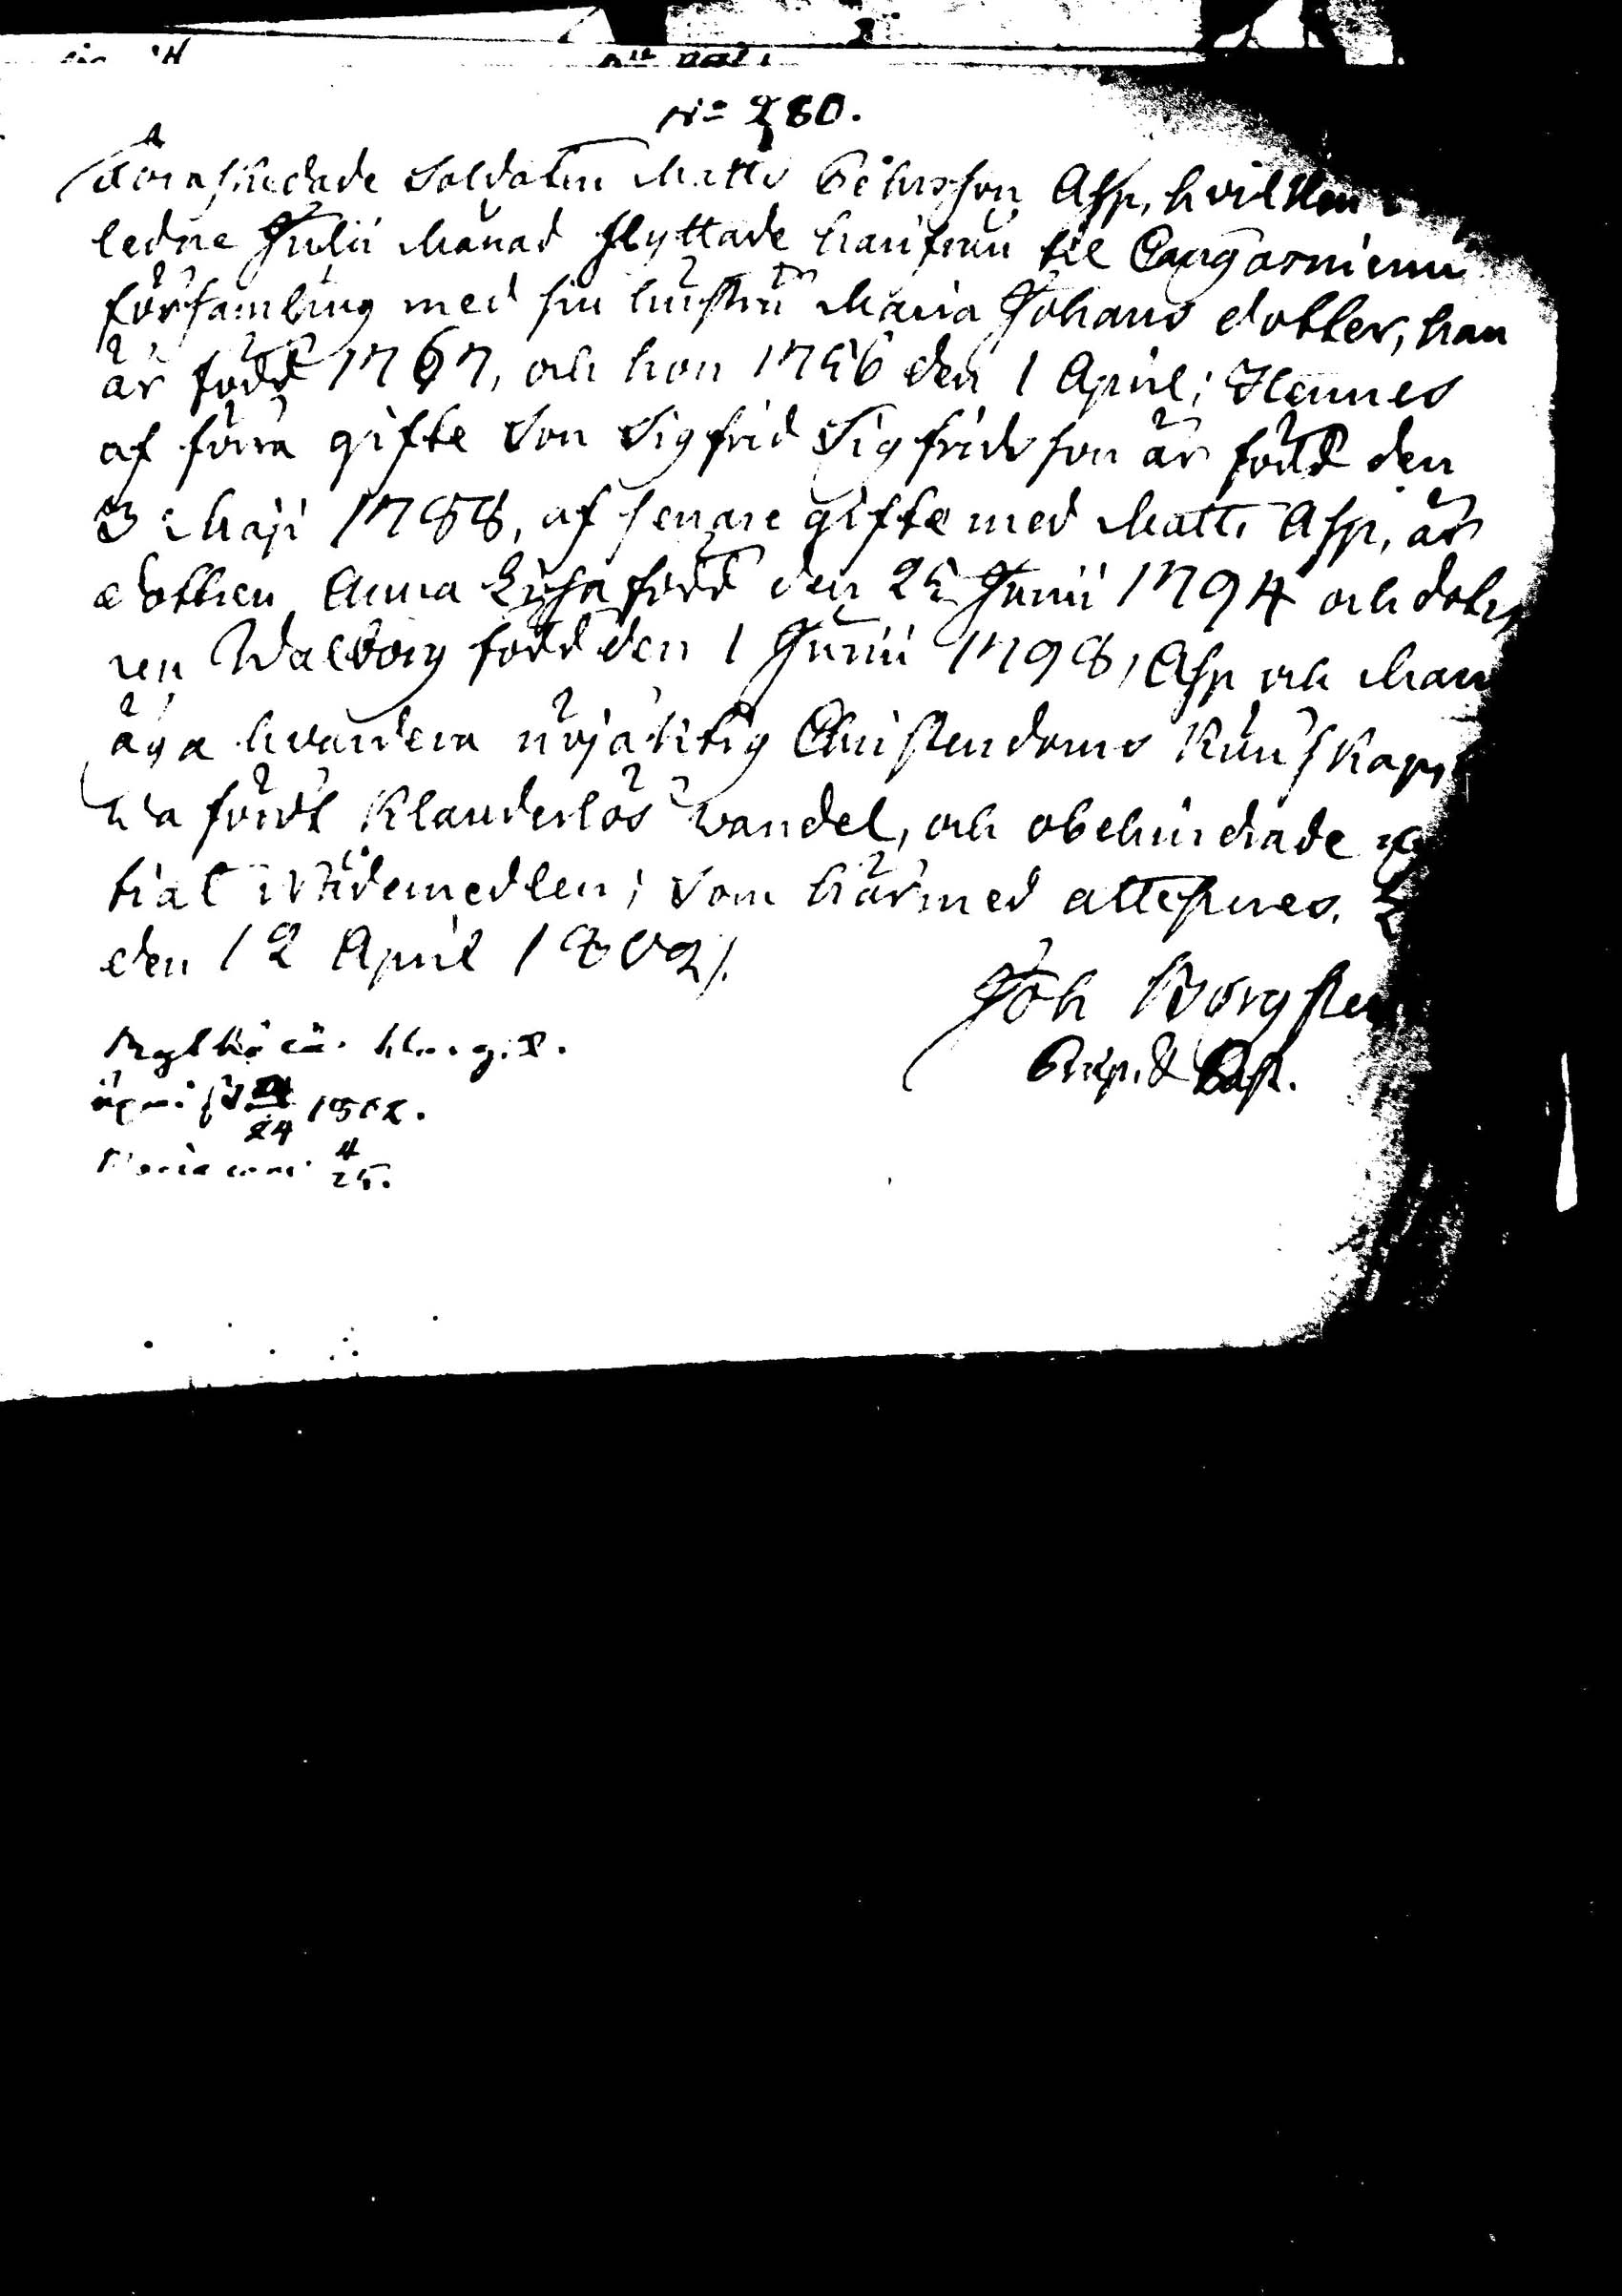 No 280.
Afskedade Soldaten Matts Ersson Asp, hvilken
ledne Julii Månad flyttade härifrån til Cangasniemi
församling med sin hustru Maria Johans dotter, han
är född 1767, och hon 1756 den 1 April; Hennes
af förra gifte Son Sigfrid Sigfridsson är född den
3 Maji 1788, af senare gifte med Matts Asp, är
dottren Anna Lisa född den 25 Junii 1794 och dott
ren Walborg född den 1 Junii 1798, Asp och Mar
äga hvardera nöjaktig Christendoms Kunskap,
ha fördt Klanderlös wandel, och obehindrade
til Nådemedlen; Som härmed attesteras.
den 12 April 1802.
Joh Borgste
Past.
1802.
24
Maria 4
25.